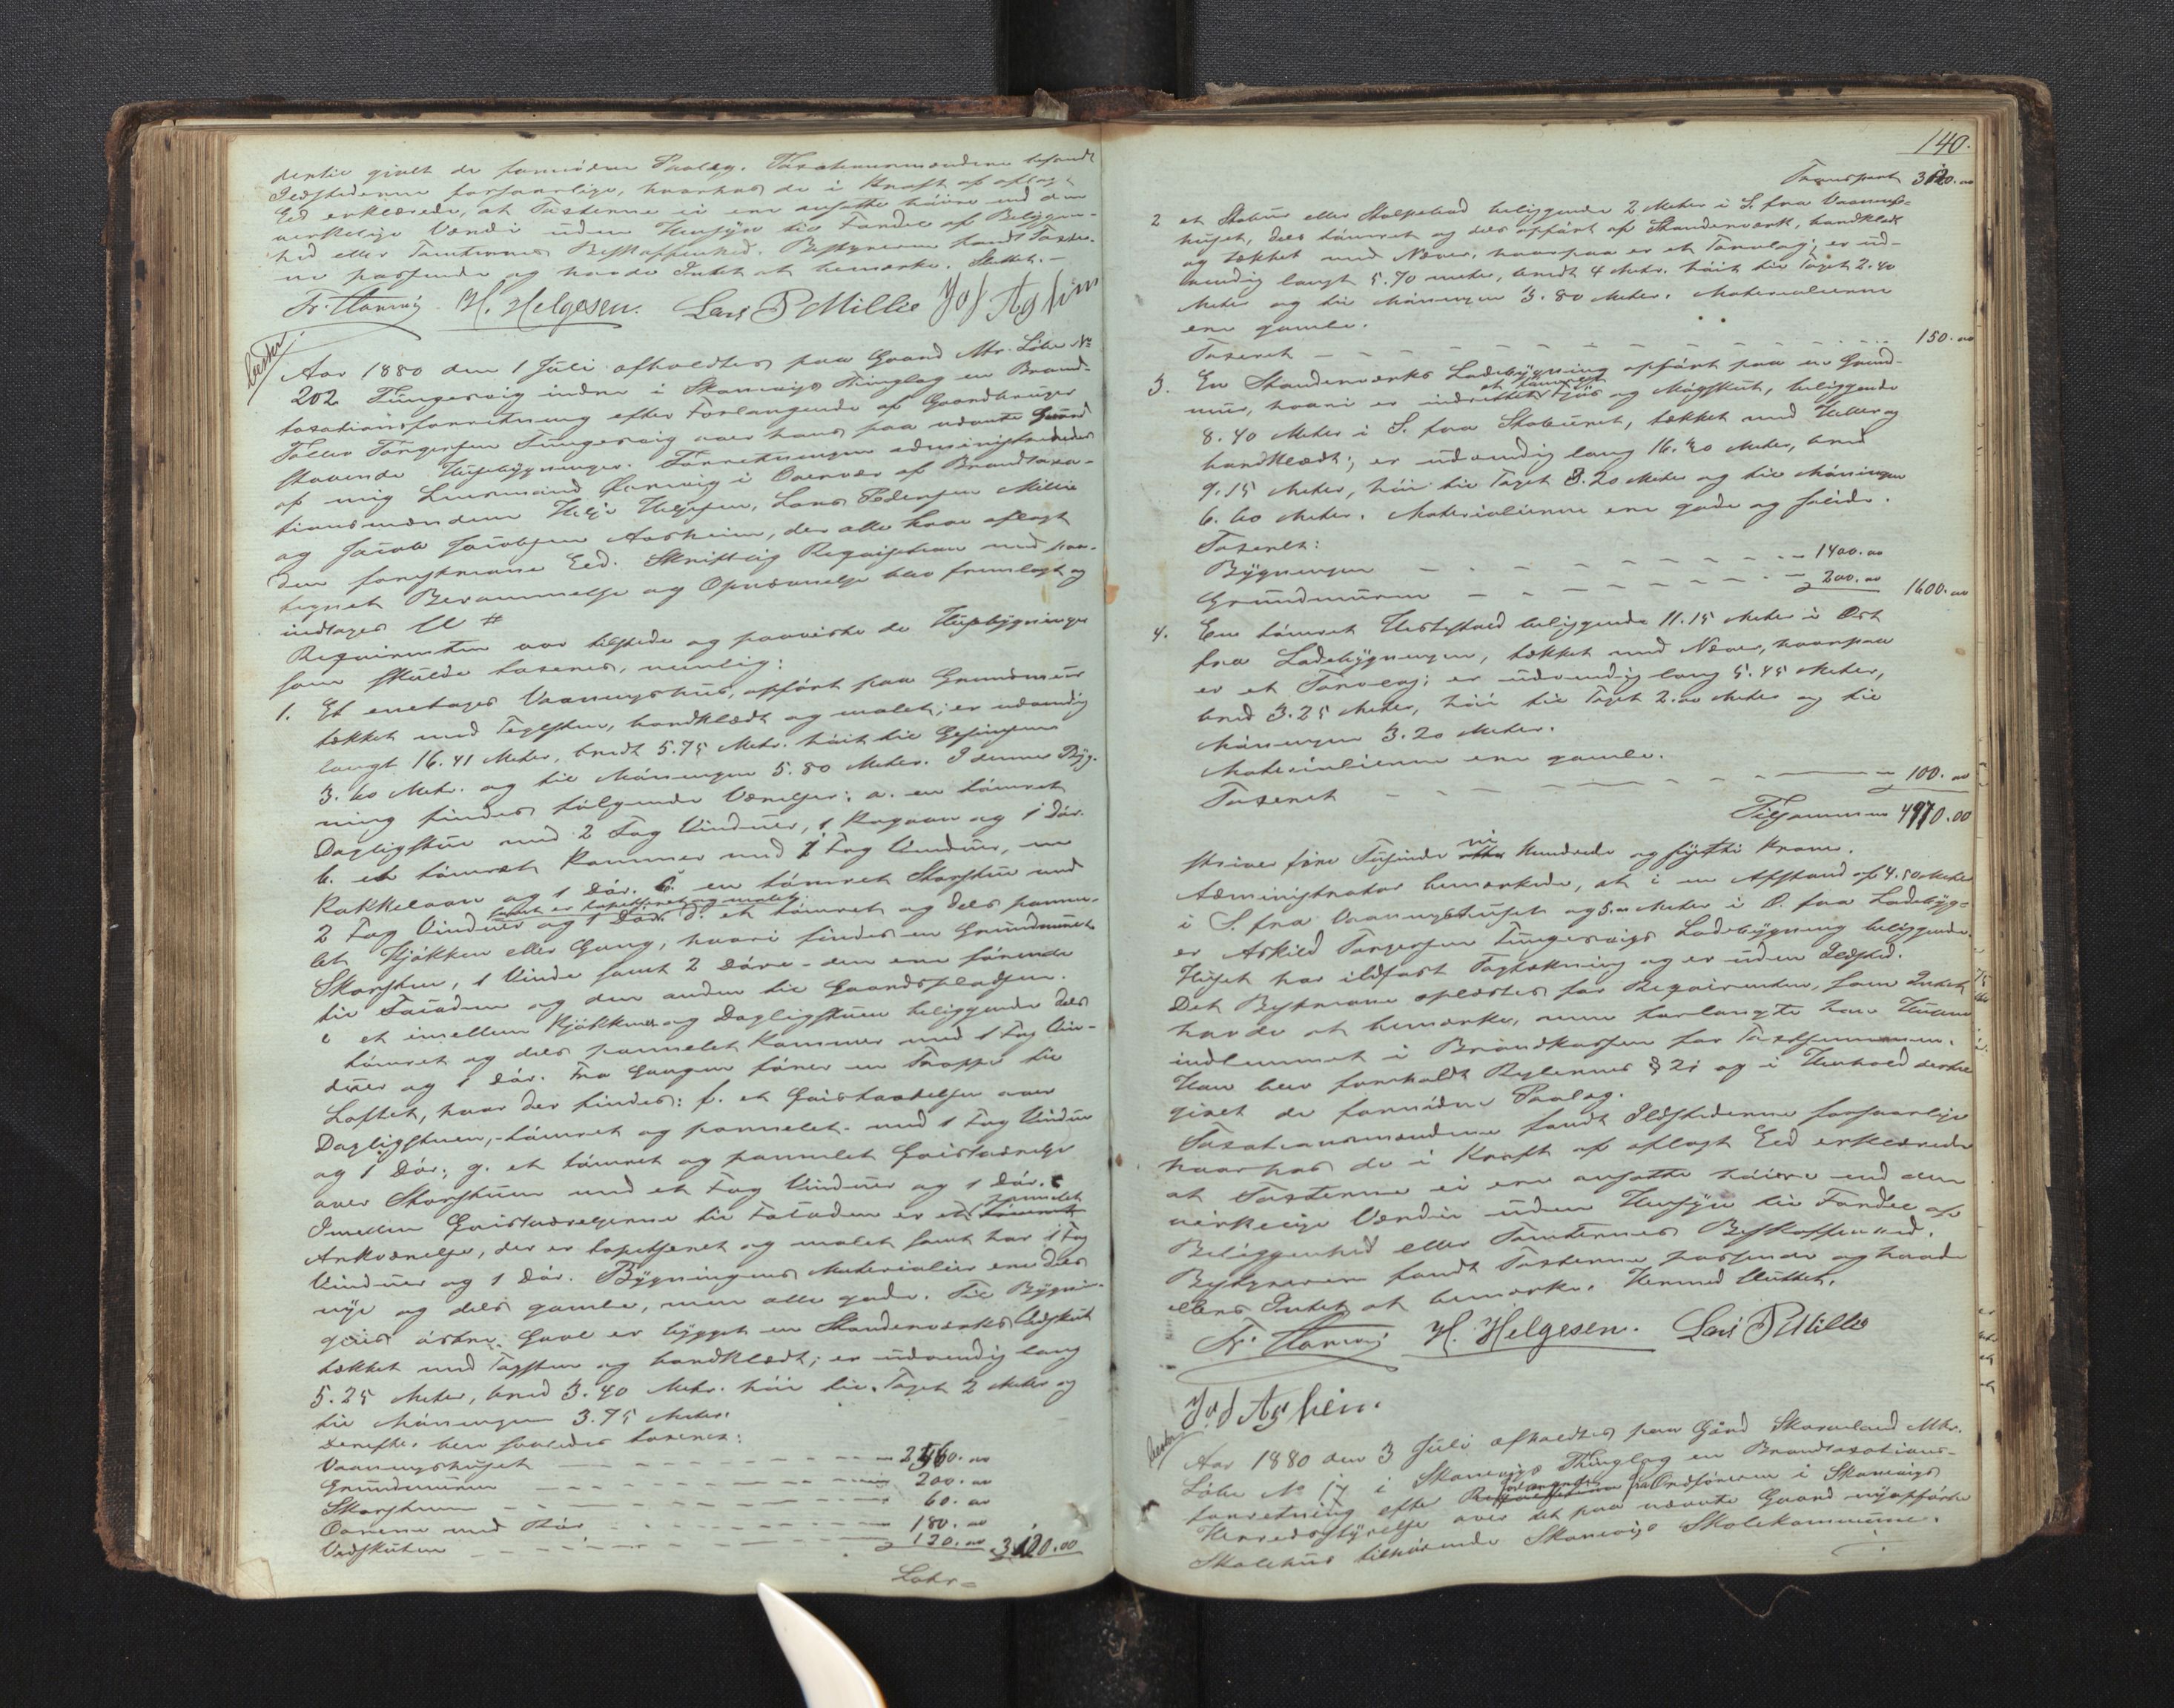 dertil givet de fornødne Paalæg. Taxationsmændene befandt
Ildstederne forsvarlige, hvorhos de i Kraft af aflagt
Eed erklærede, at Taxterne ei ere ansatte høiere end den
virkelige Værdi uden Hensyn til Fordel af Beliggen-
hed eller Tomternes Beskaffenhed. Bestyreren fandt Taxter-
ne passende og havde Intet at bemærke. Sluttet.
H. Helgesen. Lars P Millie
Aar 1880 den 1 Juli afholdtes paa Gaard Mtr. Löbe No
202 Tungesvig indre i Skonevigs Thinglag en Brand-
taxationsforretning efter Forlangende af Gaardbruger
Tollev Torgersen Tungesvig over hans paa nævnte Gaard
staaende Husebygninger. Forretningen administreredes
af mig Lensmand i Overvær af Brandtaxa-
tionsmændene Helje Heljesen, Lars Pedersen Millie
og Jacob Jacobsen Aasheim, der alle have aflagt
den foreskrevne Eed. Skriftlig Reqvisition med paa-
tegnet Berammelse og Opnævnelse blev fremlagt og
indtages
Reqvirenten var tilstede og paaviste de Husebygninger
som skulde taxeres, nemlig:
1. Et enetages Vaaningshus, opført paa Grundmuur
tækket med Teglsten, bordklædt og malet; er udvendig
langt 16.41 Meter, bredt 5.75 Metr. høit til Gesimsen
3.60 Metr. og til Møningen 5.80 Meter. I denne Byg-
ning findes følgende Værelser: a. en tømret
Dagligstue med 2 Fag Vinduer, 1 Kogeovn og 1 Dör
b. et tømret Kammer med 1 Fag Vinduer, en
Kakkelovn og 1 Dör. c. en tømret Storstue med
2 Fag Vinduer og 1 Dör samt er tapetseret og malet. d. et tømret og dels panne-
let Kjökken eller Gang, hvori findes en Grundmuret
Skorsten, 1 Vindu samt 2 Döre - den ene førende
til Facaden og den anden til Gaardspladsen.
e et imellem Kjökkenet og Dagligstuen beliggende dels
tømret og dels pannelet Kammer med 1 Fag Vin-
duer og 1 Dör. Fra Gangen fører en Trappe til
Loftet, hvor der findes: f. et Gaistværelse over
Dagligstuen, - tømret og pannelet - med 1 Fag Vinduer
og 1 Dör; g. et tømret og pannelet Gaistværelse
over Storstuen med et Fag Vinduer og 1 Dör.
Imellem Gaistværelserne til Facaden er et pannelet
Arkværelse, der er tapetseret og malet samt har 1 Fag
Vinduer og 1 Dör. Bygningens Materialier ere dels
nye og dels gamle, men alle gode. Til Bygnin-
gens østre Gavl er bygget en Standerværks Vedskut
tækket med Tagsten og bordklædt; er udvendig lang
5.25 Meter, bred 3.40 Metr. høi til Taget 2 Meter og
til Møningen 3.75 Meter.
Derefter blev saaledes taxeret:
Vaaningshuset 2560.00
Grundmuren 200.00
Skorstenen 60.00
Ovnene med Rör 180.00
Vedskuten 120.00 3120.00
Latr=
140.
Transport 3120.00
2 et Stabur eller Stolpebod beliggende 2 Meter i S. fra Vaanings-
huset, dels tømret og dels opført af Standerværk, bordklædt
og tækket med Næver, hvorpaa er et Torvlag; er ud-
vendig langt 5.70 meter, bredt 4 Metr. høit til Taget 2.40
Meter og til Møningen 3.80 Meter. Materialierne
ere gamle.
Taxeret 150.00
3. En Standerværks Ladebygning opført paa en Grund-
muur, hvori er indrettet et tømret Fjös og Mögskut, beliggende
8.40 Meter i S. fra Staburet, tækket med Heller og
bordklædt; er udvendig lang 16.20 Meter, bred
9.15 Meter, høi til Taget 3.20 Meter og til Møningen
6.60 Meter. Materialierne ere gode og solide.
Taxeret:
Bygningen 1400.00
Grundmuren 200.00 1600.00
4. Een tømret Hestestald beliggende 11.15 Meter i Øst
fra Ladebygningen, tækket med Næver, hvorpaa
er et Torvlag; er udvendig lang 5.45 Meter,
bred 3.25 Meter, høi til Taget 2.00 Meter og til
Møningen 3.20 Meter.
Materialierne ere gamle.
Taxeret 100.00
Tilsammen 4970.00
skriver fire Tusinde ni Hundrede og sytti Kroner.
Administrator bemærkede, at i en Afstand af 4.50 Meter
i S. fra Vaaningshuset og 5.00 Meter i Ø. fra Ladebyg-
er Askild Torgersen Tungesvigs Ladebygning beliggende.
Huset har ildfast Tagtækning og er uden Ildsted.
Det Beskrevne oplæstes for Reqvirenten, som Intet
havde at bemærke, men forlangte han Husene
indlemmet i Brandkassen for Taxtsummen.
Han blev foreholdt Reglernes § 21 og i Henhold dertil
givet de fornødne Paalæg.
Taxationsmændene fandt Ildstederne forsvarlige
hvorhos de i Kraft af aflagt Eed erklærede
at Taxterne ei ere ansatte høiere end den
virkelige Værdi uden Hensyn til Fordel af
Beliggenhed eller Tomternes Beskaffenhed.
Bestyreren fandt Taxterne passende og havde
ellers Intet at bemærke. Hermed sluttet.
H. Helgesen. Lars P Millie
Aar 1880 den 3 Juli afholdtes paa Gaard Skorveland Mtr.
Löbe No 17 i Skonevigs Thinglag en Brandtaxations-
forretning efter Forlangende fra Ordføreren i Skonevigs
Herredsstyrelse over det paa nævnte Gaard nyopførte
Skolehus tilhørende Skonevigs Skolekommune.